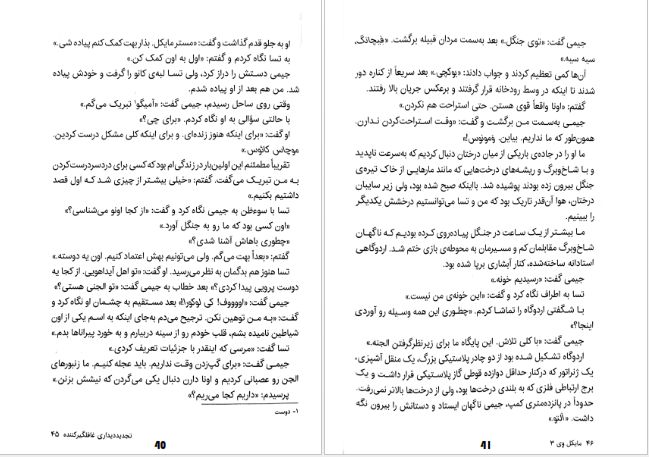 او به جلو قدم گذاشت و گفت: «مستر مایکل. بذار بهت کمک کنم پیاده شی.»
به تسا نگاه کردم و گفتم: «اول به اون کمک کن.»
جیمی دستش را دراز کرد، ولی تسا لبه‌ی کانو را گرفت و خودش پیاده
شد. من هم بعد از او پیاده شدم.
وقتی روی ساحل رسیدم، جیمی گفت: «آمیگو¹ تبریک می‌گم.»
با حالتی سؤالی به او نگاه کردم. «برای چی؟»
او گفت: «برای اینکه هنوز زنده‌ای. و برای اینکه کلی مشکل درست کردین.
موچاس کائوس.»
تقریباً مطمئنم این اولین‌بار در زندگی‌ام بود که کسی برای دردسر درست‌کردن
به من تبریک می‌گفت. گفتم: «خیلی بیشتر از چیزی شد که اول قصد
داشتیم بکنیم.»
تسا با سوءظن به جیمی نگاه کرد و گفت: «از کجا اونو می‌شناسی؟»
«اون کسی بود که ما رو به جنگل آورد.»
«چطوری باهاش آشنا شدی؟»
گفتم: «بعداً بهت می‌گم. ولی می‌تونیم بهش اعتماد کنیم. اون یه دوسته.»
تسا هنوز هم بدگمان به نظر می‌رسید. او گفت: «تو اهل آیداهویی. از کجا یه
دوست پرویی پیدا کردی؟» بعد خطاب به جیمی گفت: «تو الجنی هستی؟»
جیمی گفت: «اووووف! کی لوکورا!» بعد مستقیم به چشمان او نگاه کرد و
گفت: «به من توهین نکن. ترجیح می‌دم به‌جای اینکه به اسم یکی از اون
شیاطین نامیده بشم، قلب خودم رو از سینه دربیارم و به خورد پیراناها بدم.»
تسا گفت: «مرسی که اینقدر با جزئیات تعریف کردی.»
جیمی گفت: «برای گپ‌زدن وقت نداریم. باید عجله کنیم. ما زنبورهای
الجن رو عصبانی کردیم و اونا دارن دنبال یکی می‌گردن که نیشش بزنن.»
پرسیدم: «داریم کجا می‌ریم؟»
۱- دوست
تجدیددیداری غافلگیرکننده ۴۵
40
جیمی گفت: «توی جنگل.» بعد به‌سمت مردان قبیله برگشت.
سیه سیه.»
آن‌ها کمی تعظیم کردند و جواب دادند: «پوکچی.» بعد سریعاً از کناره دور
شدند تا اینکه در وسط رودخانه قرار گرفتند و برعکس جریان بالا رفتند.
گفتم: «اونا واقعاً قوی هستن. حتی استراحت هم نکردن.»
جیمی به‌سمت من برگشت و گفت: «وقت استراحت‌کردن ندارن.
همون‌طور که ما نداریم. بیاین. وموتوس!»
ما او را در جاده‌ی باریکی از میان درختان دنبال کردیم که به‌سرعت ناپدید
و با شاخ‌وبرگ و ریشه‌های درخت‌هایی که مانند مارهایی از خاک تیره‌ی
جنگل بیرون زده بودند پوشیده شد. بااینکه صبح شده بود، ولی زیر سایبان
درختان، هوا آن‌قدر تاریک بود که من و تسا می‌توانستیم درخشش یکدیگر
را ببینیم.
ما بیشتر از یک ساعت در جنگل پیاده‌روی کرده بودیم که ناگهان
شاخ‌وبرگ مقابلمان کم و مسیرمان به محوطه‌ی بازی ختم شد. اردوگاهی
استادانه ساخته‌شده، کنار آبشاری برپا شده بود.
جیمی گفت: «رسیدیم خونه.»
تسا به اطراف نگاه کرد و گفت: «این خونه‌ی من نیست.»
با شگفتی اردوگاه را تماشا کردم. «چطوری این همه وسیله رو آوردی
اینجا؟»
جیمی گفت: «با کلی تلاش. این پایگاه ما برای زیرنظرگرفتن الجنه.»
اردوگاه تشکیل شده بود از دو چادر پلاستیکی بزرگ، یک منقل آشپزی،
یک ژنراتور که درکنار حداقل دوازده قوطی گاز پلاستیکی قرار داشت و یک
برج ارتباطی فلزی که به بلندی درخت‌ها بود، ولی از درخت‌ها بالاتر نمی‌رفت.
حدوداً در پانزده‌متری کمپ، جیمی ناگهان ایستاد و دستانش را بیرون نگه
داشت. «آلتو.»
۴۶ مایکل وی ۳
41